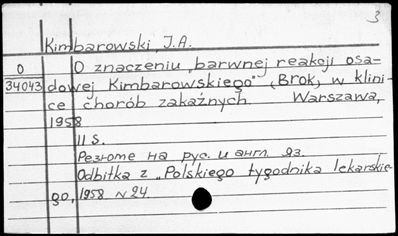 3
Kimbarowski, J.A.
O O znaczeniu „barwnej reakcji osa-
34043 dowej Kimbarowskiego" (Brok) w klini-
ce chorób zakaźnych. Warszawa,
1958
11 S.
Резюме на рус. и англ. яз.
Odbitka z „Polskiego tygodnika lekarskie-
go, 1958 N 24.